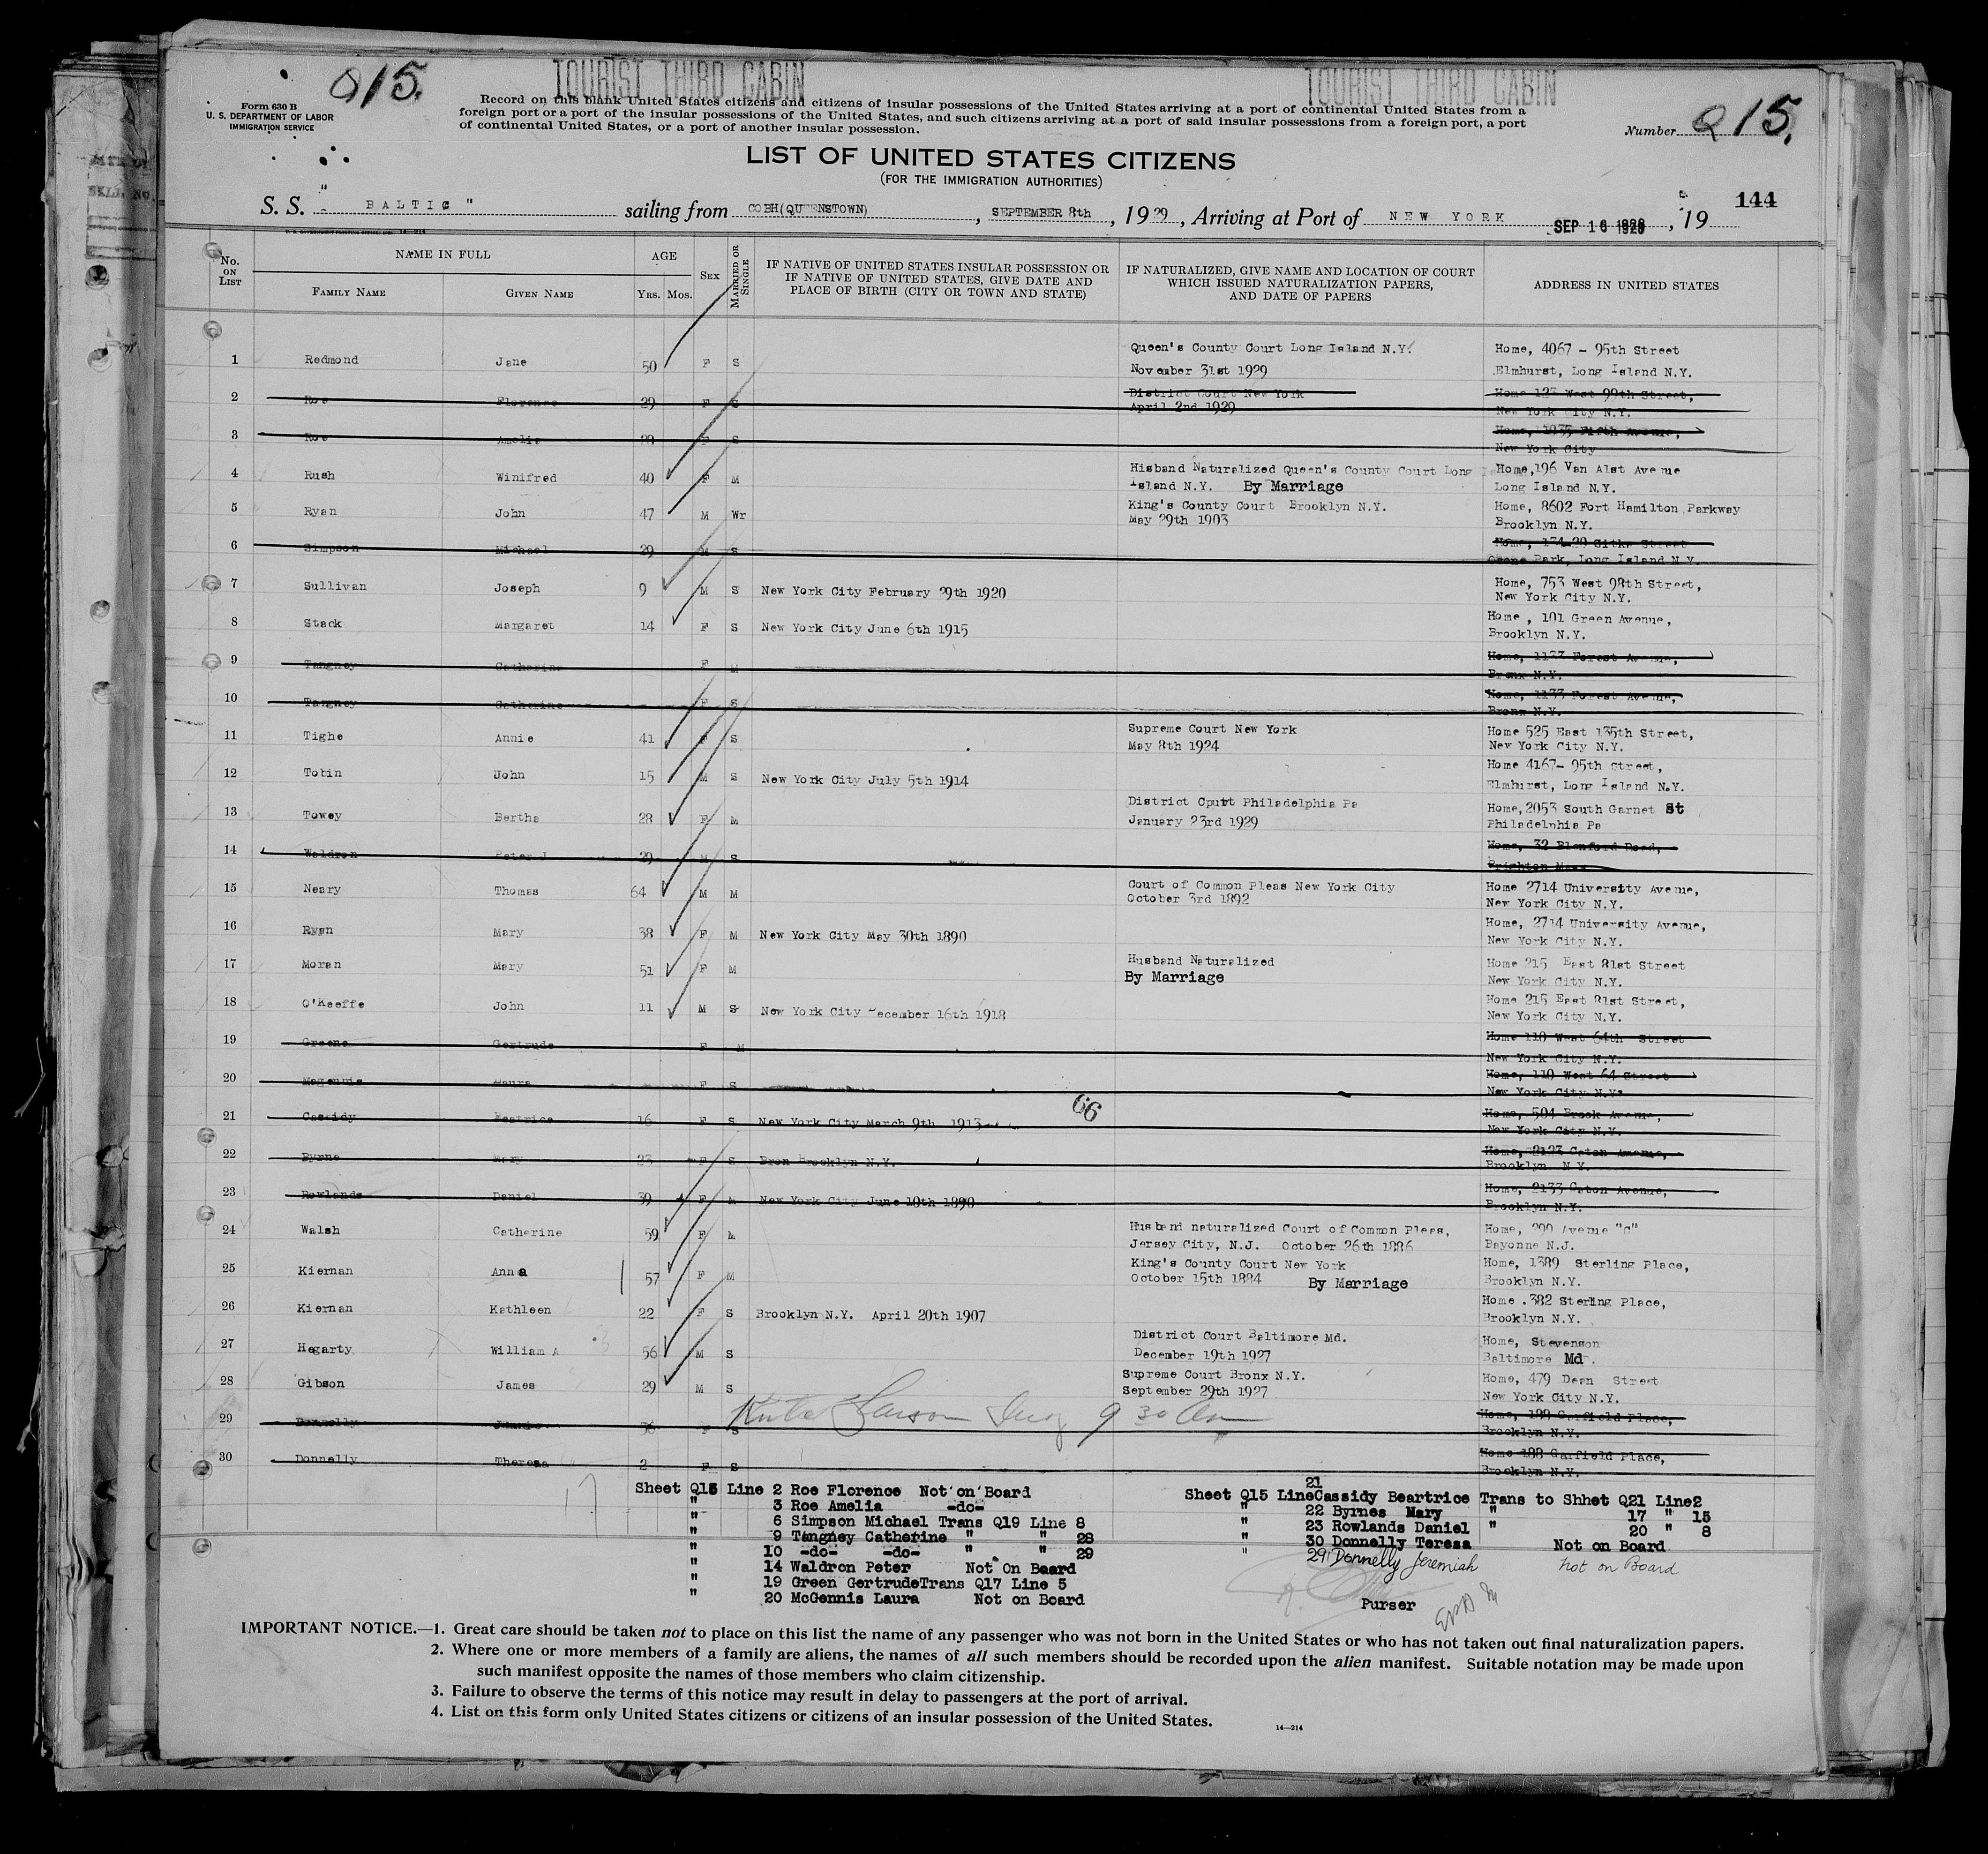 Q15.
TOURIST THIRD CABIN
TOURIST THIRD CABIN
Form 630 B
U. S. DEPARTMENT OF LABOR
IMMIGRATION SERVICE
Record on this blank United States citizens and citizens of insular possessions of the United States arriving at a port of continental United States from a
foreign port or a port of the insular possessions of the United States, and such citizens arriving at a port of said insular possessions from a foreign port, a port
of continental United States, or a port of another insular possession.
Number Q 15.
LIST OF UNITED STATES CITIZENS
(FOR THE IMMIGRATION AUTHORITIES)
144
S. S. " BALTIC " sailing from COBH(QUEENSTOWN), SEPTEMBER 8th, 1929, Arriving at Port of NEW YORK SEP 16 1929, 19
No. ON LIST
NAME IN FULL
FAMILY NAME
GIVEN NAME
AGE
YRS. MOS.
SEX
MARRIED OR SINGLE
IF NATIVE OF UNITED STATES INSULAR POSSESSION OR
IF NATIVE OF UNITED STATES, GIVE DATE AND
PLACE OF BIRTH (CITY OR TOWN AND STATE)
IF NATURALIZED, GIVE NAME AND LOCATION OF COURT
WHICH ISSUED NATURALIZATION PAPERS,
AND DATE OF PAPERS
ADDRESS IN UNITED STATES
Queen's County Court Long Island N.Y. Home, 4067 - 95th Street
1 Redmond Jane 50 F S November 31st 1929 Elmhurst, Long Island N.Y.
District Court New York Home 123 West 99th Street,
2 Roe Florence 29 F S April 2nd 1929 New York City N.Y.
Home, 1035 Fifth Avenue,
3 Roe Amelia 28 F S New York City
Hisband Naturalized Queen's County Court Long Home,196 Van Alst Avenue
4 Rush Winifred 40 F M Island N.Y. By Marriage Long Island N.Y.
King's County Court Brooklyn N.Y. Home, 8602 Fort Hamilton Parkway
5 Ryan John 47 M Wr May 29th 1903 Brooklyn N.Y.
Home, 134-20 Sitka Street
6 Simpson Michael 29 M S Ozone Park, Long Island N.Y.
Home, 753 West 98th Street,
7 Sullivan Joseph 9 M S New York City February 29th 1920 New York City N.Y.
Home , 101 Green Avenue,
8 Stack Margaret 14 F S New York City June 6th 1915 Brooklyn N.Y.
Home, 1133 Forest Avenue,
9 Tangney Catherine F M Bronx N.Y.
Home, 1133 Forest Avenue,
10 Tangney Catherine F S Bronx N.Y.
Supreme Court New York Home 525 East 135th Street,
11 Tighe Annie 41 F S May 8th 1924 New York City N.Y.
Home 4167- 95th Street,
12 Tobin John 15 M S New York City July 5th 1914 Elmhurst, Long Island N.Y.
District Cpurt Philadelphia Pa Home, 2053 South Garnet St
13 Towey Bertha 28 F M January 23rd 1929 Philadelphia Pa
Home, 32 Blanford Road,
14 Waldron Peter J 29 M S Brighton Mass
Court of Common Pleas New York City Home 2714 University Avenue,
15 Neary Thomas 64 M M October 3rd 1892 New York City N.Y.
Home, 2714 University Avenue,
16 Ryan Mary 38 F M New York City May 30th 1890 New York City N.Y.
Husband Naturalized Home 215 East 81st Street
17 Moran Mary 51 F M By Marriage New York City N.Y.
Home 215 East 81st Street,
18 O'Keeffe John 11 M S New York City December 16th 1918 New York City N.Y.
Home 110 West 64th Street
19 Greene Gertrude F M New York City N.Y.
Home, 110 West 64 Street
20 Magennis Laura F S New York City N.Y.
66
Home, 504 Brook Avenue,
21 Cassidy Beatrice 16 F S New York City March 9th 1913 New York City N.Y.
Home, 2123 Caton Avenue,
22 Byrne Mary 23 F S Bron Brooklyn N.Y. Brooklyn N.Y.
Home, 2133 Caton Avenue,
23 Rowlands Daniel 39 F M New York City June 10th 1890 Brooklyn N.Y.
Husband naturalized Court of Common Pleas, Home, 299 Avenue "C"
24 Walsh Catherine 59 F M Jersey City, N.J. October 26th 1886 Bayonne N.J.
King's County Court New York Home, 1389 Sterling Place,
25 Kiernan Anna 57 F M October 15th 1884 By Marriage Brooklyn N.Y.
Home .382 Sterling Place,
26 Kiernan Kathleen 22 F S Brooklyn N.Y. April 20th 1907 Brooklyn N.Y.
District Court Baltimore Md. Home, Stevenson
27 Hegarty William A 56 M S December 19th 1927 Baltimore Md.
Supreme Court Bronx N.Y. Home, 479 Dean Street
28 Gibson James 29 M S September 29th 1927 New York City N.Y.
9 30 Am
Home, 188 Garfield Place,
29 Donnelly F S Brooklyn N.Y.
Home 188 Garfield Place,
30 Donnelly Theresa 2 F S Brooklyn N.Y.
Sheet Q15 Line 2 Roe Florence Not on Board
" 3 Roe Amelia -do-
" 6 Simpson Michael Trans Q19 Line 8
" 9 Tangney Catherine " " 28
" 10 -do- -do- " " 29
" 14 Waldron Peter Not On Board
" 19 Green GertrudeTrans Q17 Line 5
" 20 McGennis Laura Not on Board
21
Sheet Q15 LineCassidy Beartrice Trans to Shhet Q21 Line2
" 22 Byrnes Mary " 17 " 15
" 23 Rowlands Daniel " 20 " 8
" 30 Donnelly Teresa Not on Board
" 29 Donnelly Jeremiah not on Board
Purser
IMPORTANT NOTICE.—1. Great care should be taken not to place on this list the name of any passenger who was not born in the United States or who has not taken out final naturalization papers.
2. Where one or more members of a family are aliens, the names of all such members should be recorded upon the alien manifest. Suitable notation may be made upon
such manifest opposite the names of those members who claim citizenship.
3. Failure to observe the terms of this notice may result in delay to passengers at the port of arrival.
4. List on this form only United States citizens or citizens of an insular possession of the United States.
14—214